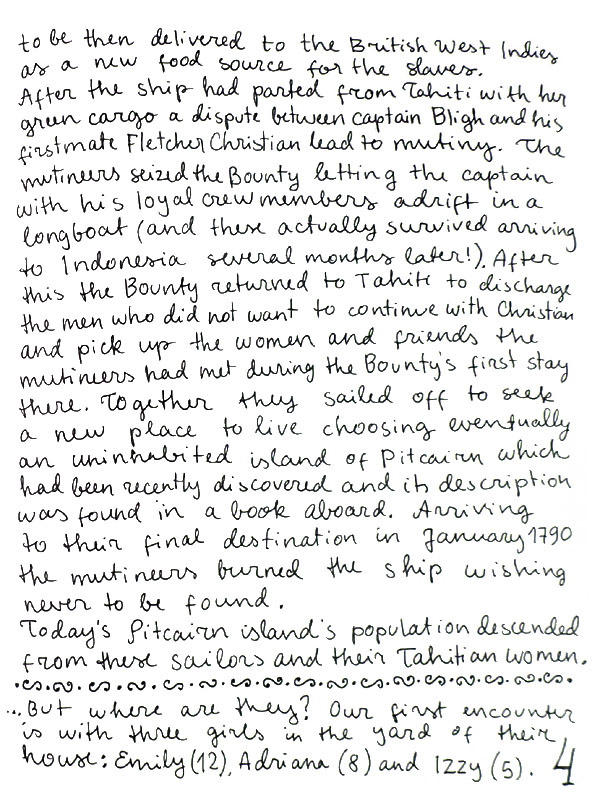 to be then delivered to the British West Indies
as a new food source for the slaves.
After the ship had parted from Tahiti with her
green cargo a dispute between captain Bligh and his
firstmate Fletcher Christian lead to mutiny. The
mutineers seized the Bounty letting the captain
with his loyal crewmembers adrift in a
longboat (and these actually survived arriving
to Indonesia several months later!). After
this the Bounty returned to Tahiti to discharge
the men who did not want to continue with Christian
and pick up the women and friends the
mutineers had met during the Bounty's first stay
there. Together they sailed off to seek
a new place to live choosing eventually
an uninhabited island of Pitcairn which
had been recently discovered and its description
was found in a book aboard. Arriving
to their final destination in January 1790
the mutineers burned the ship wishing
never to be found.
Today's Pitcairn island's population descended
from these sailors and their Tahitian women.
...But where are they? Our first encounter
is with three girls in the yard of their
house: Emily (12), Adriana (8) and Izzy (5). 4